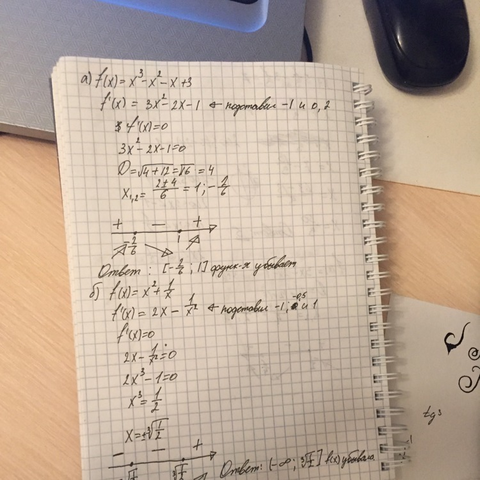 а) f(x) = x³-x²-x+3
f'(x) = 3x²-2x-1 ← подставил -1 и 0, 2
f'(x)=0
3x²-2x-1=0
D=√4+12=√16=4
x₁,₂= (2±4)/6 = 1; -2/6
+ - +
-2/6 1
Ответ: [-2/6; 1] функ-я убывает
б) f(x) = x²+1/x
f'(x) = 2x - 1/x² ← подставил -1; -0,5 и 1
f'(x)=0
2x-1/x²=0
2x³-1=0
x³=1/2
x=±³√1/2
- - +
Ответ: (-∞; ³√1/2] f(x) убывала
tg3